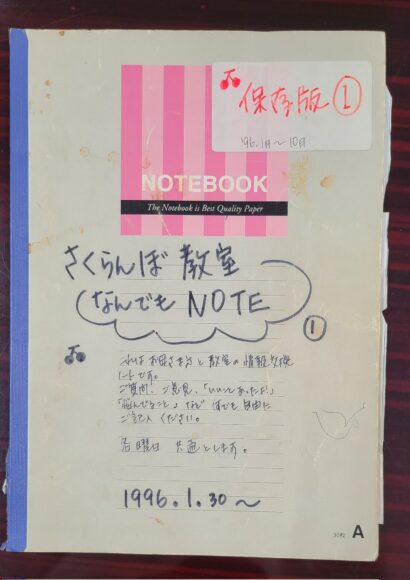 保存版①
'96.1月〜10月
NOTEBOOK
The Notebook is Best Quality Paper
さくらんぼ教室
なんでもNOTE
①
これは お母さま方と教室の情報交換
ノートです。
ご質問、ご意見、「いいことあったよ!」
「悩んでること」など 何でも自由に
ご記入ください。
各曜日 共通とします。
1996.1.30〜
A